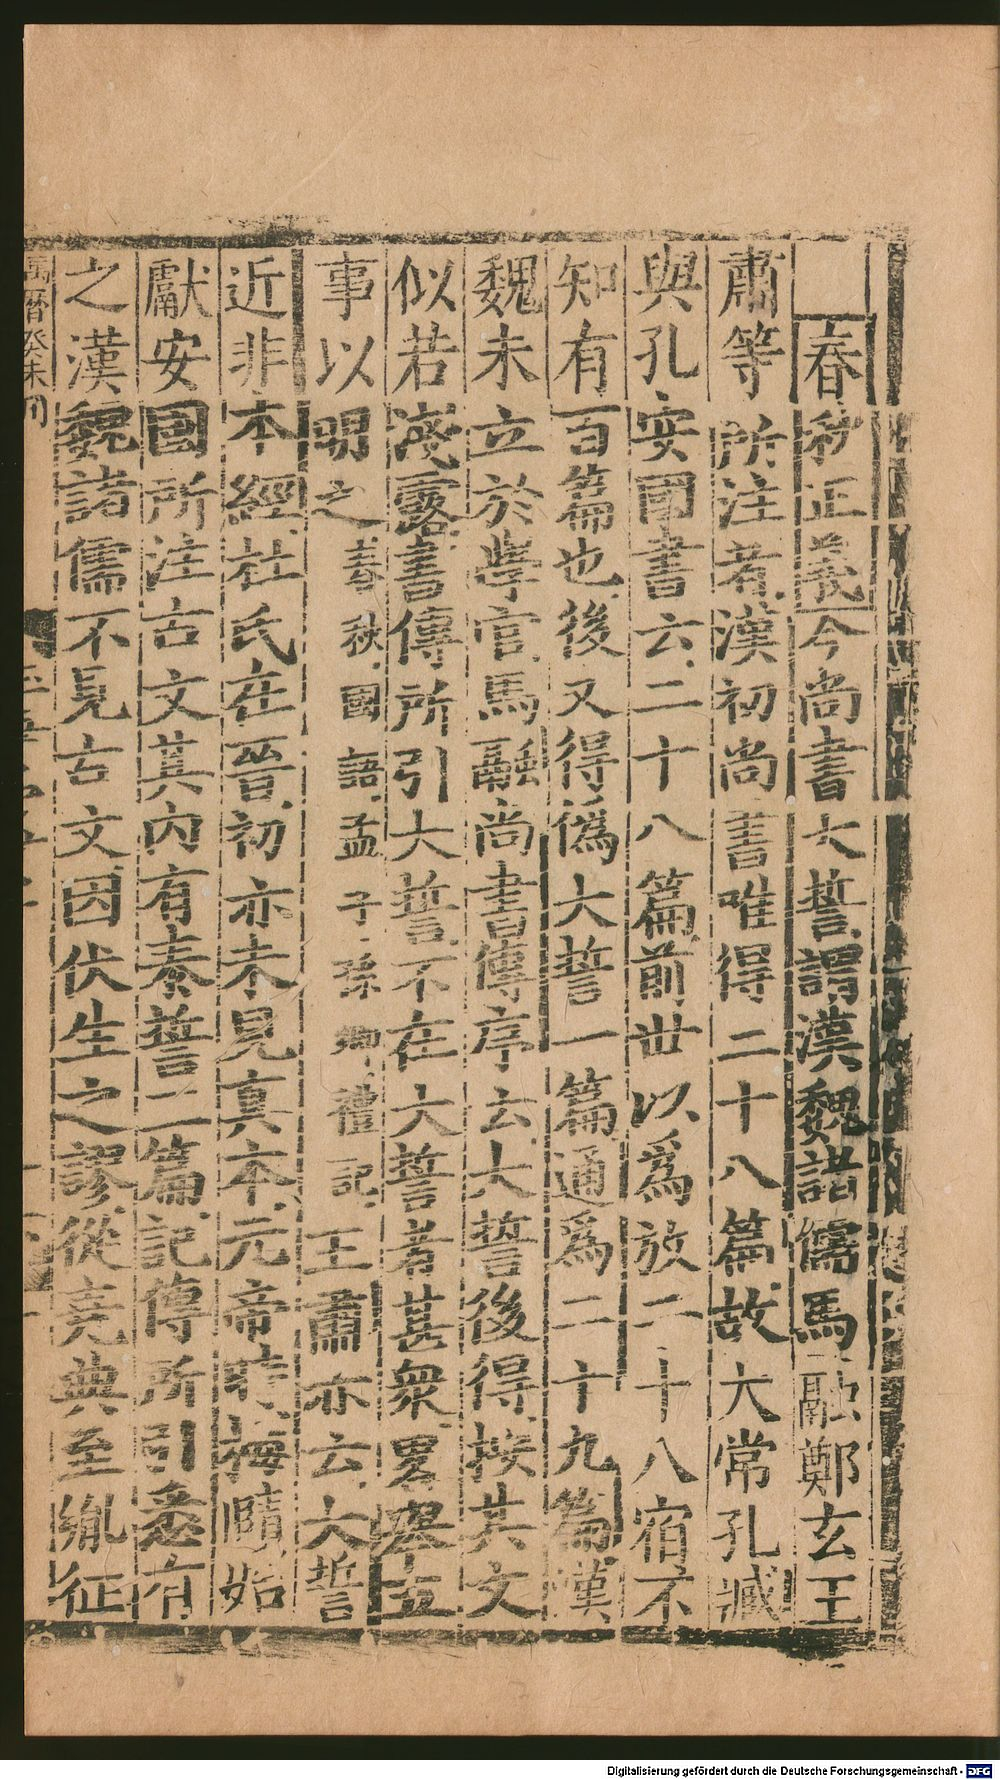 春秋正義今尚書大誓謂漢魏諸儒馬融鄭玄王
肅等所注者漢初尚書唯得二十八篇故大常孔臧
與孔安國書云二十八篇前世以爲放二十八宿不
知有百篇也後又得僞大誓一篇通爲二十九篇漢
魏未立於學官馬融尚書傳序云大誓後得按其文
似若淺露書傳所引大誓不在大誓者甚衆畧舉五
事以明之春秋國語孟子孫卿禮記王肅亦云大誓
近非本經杜氏在晉初亦未見真本元帝時梅賾始
獻安國所注古文其内有泰誓三篇記傳所引悉有
之漢魏諸儒不見古文因伏生之謬從堯典至胤征
萬曆癸未刊
Digitalisierung gefördert durch die Deutsche Forschungsgemeinschaft - DFG